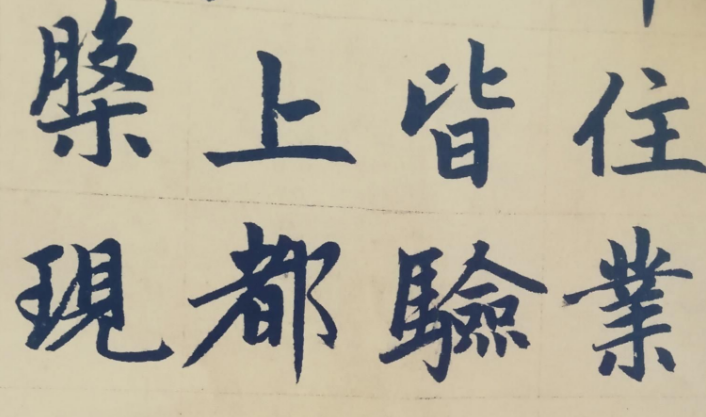 住業
皆驗
上都
槃現